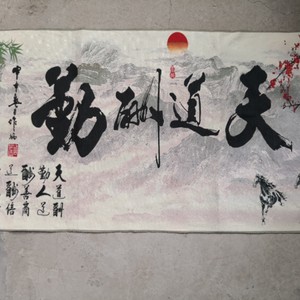 天道酬勤
天道酬
勤人道
酬善商
道酬信